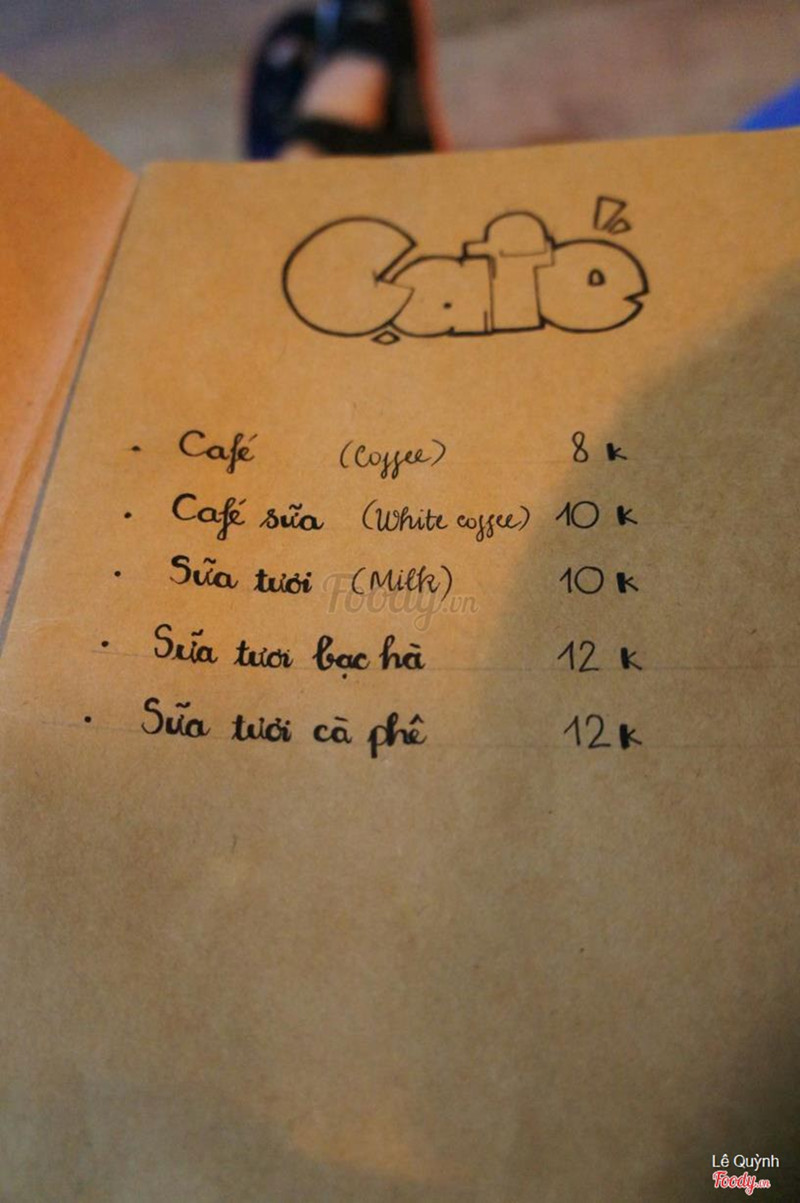 Café
· Café (Coffee) 8 k
· Café sữa (White coffee) 10 k
· Sữa tươi (Milk) 10 k
Foody.vn
· Sữa tươi bạc hà 12 k
· Sữa tươi cà phê 12 k
Lê Quỳnh
Foody.vn